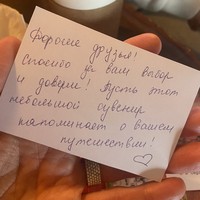 Дорогие друзья!
Спасибо за вам выбор
и доверие! Пусть этот
небольшой сувенир
напоминает о вашем
путешествии!